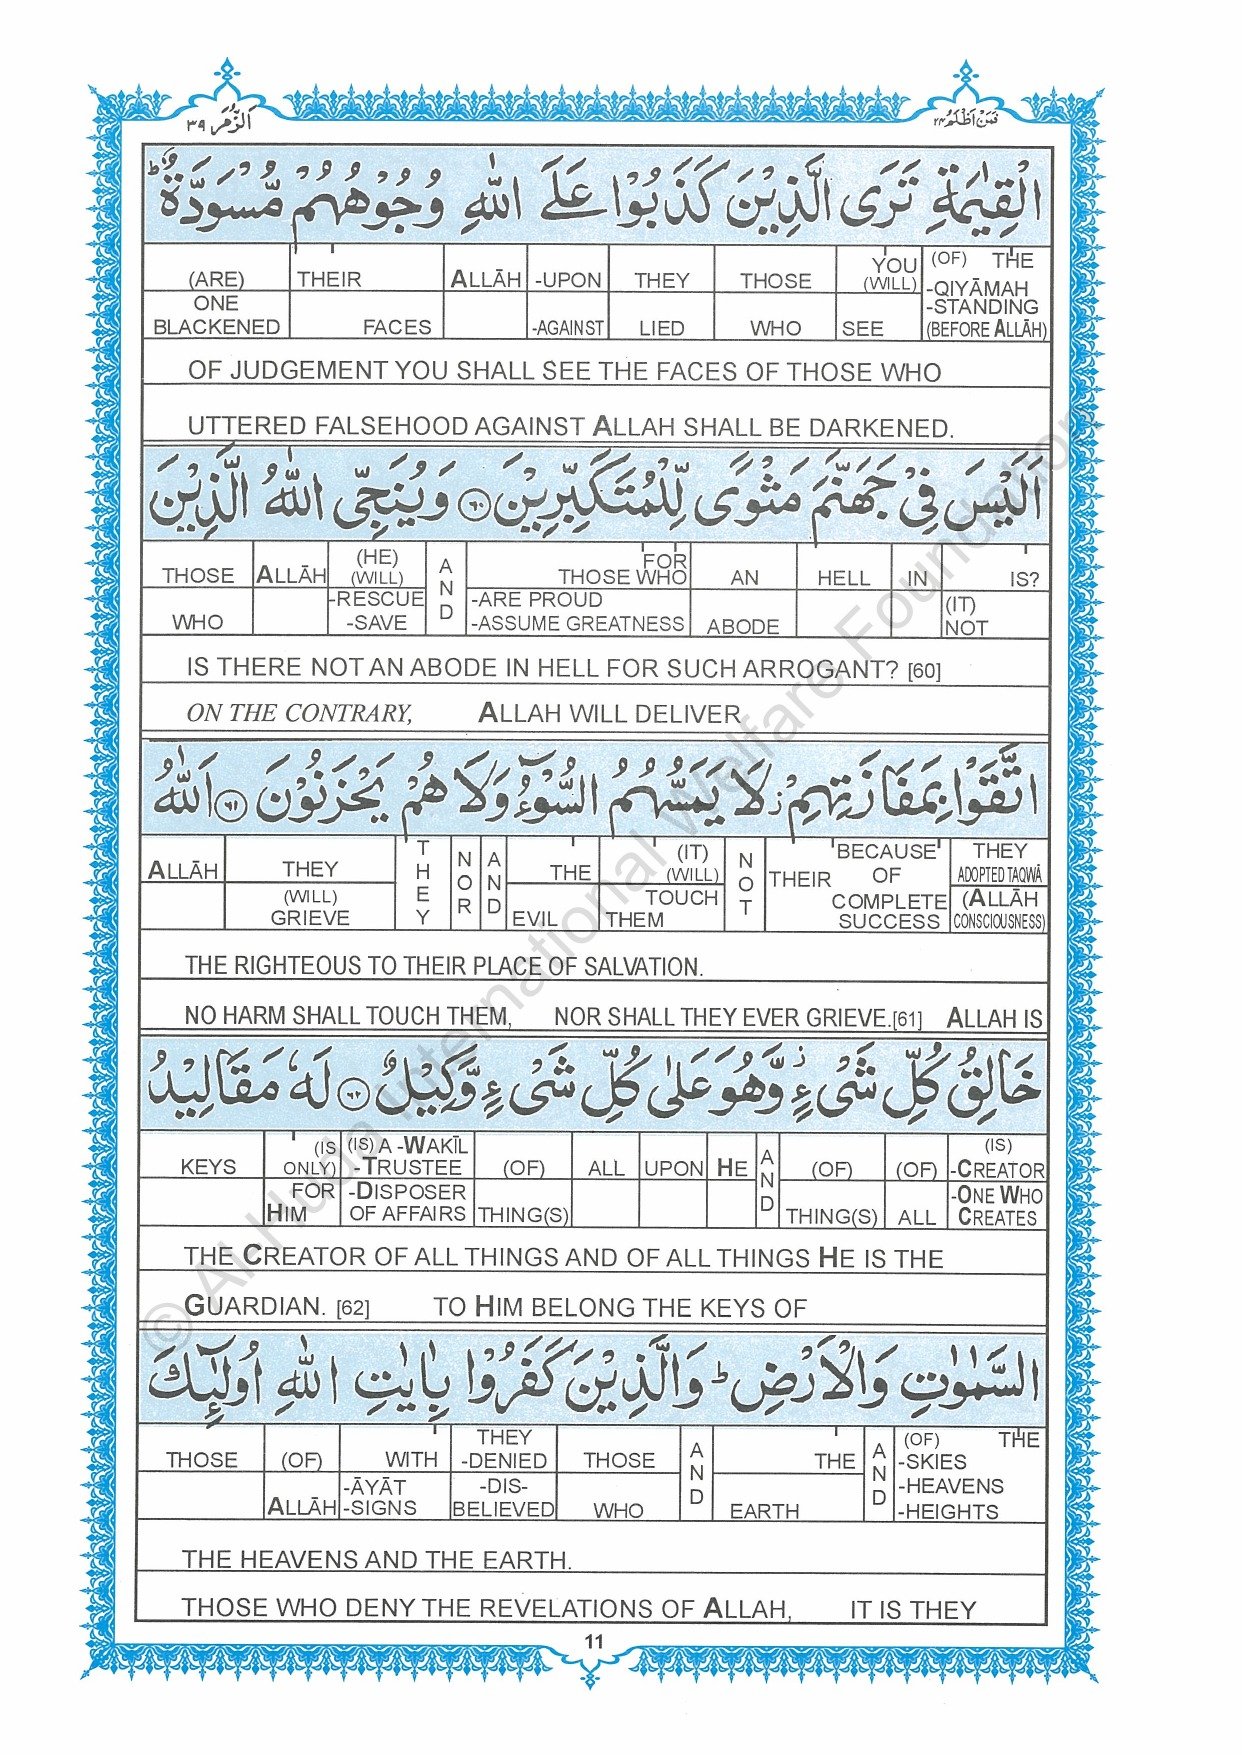 اَلزُّمَر ٣٩
فَمَنْ اَظْلَمُ ٢٤
الْقِيٰمَةِ تَرَى الَّذِيْنَ كَذَبُوْا عَلَى اللّٰهِ وُجُوْهُهُمْ مُّسْوَدَّةٌ ؕ
(ARE) THEIR ALLĀH -UPON THEY THOSE YOU (WILL) (OF) THE -QIYĀMAH -STANDING
ONE BLACKENED FACES -AGAINST LIED WHO SEE (BEFORE ALLĀH)
OF JUDGEMENT YOU SHALL SEE THE FACES OF THOSE WHO
UTTERED FALSEHOOD AGAINST ALLAH SHALL BE DARKENED.
اَلَيْسَ فِيْ جَهَنَّمَ مَثْوًى لِّلْمُتَكَبِّرِيْنَ ﴿٦٠﴾ وَيُنَجِّى اللّٰهُ الَّذِيْنَ
THOSE ALLĀH (HE) (WILL) AND FOR THOSE WHO AN HELL IN IS?
WHO -RESCUE -SAVE -ARE PROUD -ASSUME GREATNESS ABODE (IT) NOT
IS THERE NOT AN ABODE IN HELL FOR SUCH ARROGANT? [60]
ON THE CONTRARY, ALLAH WILL DELIVER
اتَّقَوْا بِمَفَازَتِهِمْ ز لَا يَمَسُّهُمُ السُّوْٓءُ وَلَا هُمْ يَحْزَنُوْنَ ﴿٦١﴾ اَللّٰهُ
ALLĀH THEY THEY NOR AND THE (IT) (WILL) NOT THEIR BECAUSE OF THEY ADOPTED TAQWĀ
(WILL) GRIEVE EVIL TOUCH THEM COMPLETE SUCCESS (ALLĀH CONSCIOUSNESS)
THE RIGHTEOUS TO THEIR PLACE OF SALVATION.
NO HARM SHALL TOUCH THEM, NOR SHALL THEY EVER GRIEVE.[61] ALLAH IS
خَالِقُ كُلِّ شَيْءٍ ز وَّهُوَ عَلٰى كُلِّ شَيْءٍ وَّكِيْلٌ ﴿٦٢﴾ لَهٗ مَقَالِيْدُ
KEYS (IS ONLY) (IS) A -WAKĪL -TRUSTEE (OF) ALL UPON HE AND (OF) (OF) (IS) -CREATOR
FOR HIM -DISPOSER OF AFFAIRS THING(S) THING(S) ALL -ONE WHO CREATES
THE CREATOR OF ALL THINGS AND OF ALL THINGS HE IS THE
GUARDIAN. [62] TO HIM BELONG THE KEYS OF
السَّمٰوٰتِ وَالْاَرْضِ ؕ وَالَّذِيْنَ كَفَرُوْا بِاٰيٰتِ اللّٰهِ اُولٰٓئِكَ
THOSE (OF) WITH THEY -DENIED THOSE AND THE AND (OF) THE -SKIES
ALLĀH -ĀYĀT -SIGNS -DIS- BELIEVED WHO EARTH -HEAVENS -HEIGHTS
THE HEAVENS AND THE EARTH.
THOSE WHO DENY THE REVELATIONS OF ALLAH, IT IS THEY
11
© Al-Huda International Welfare Foundation